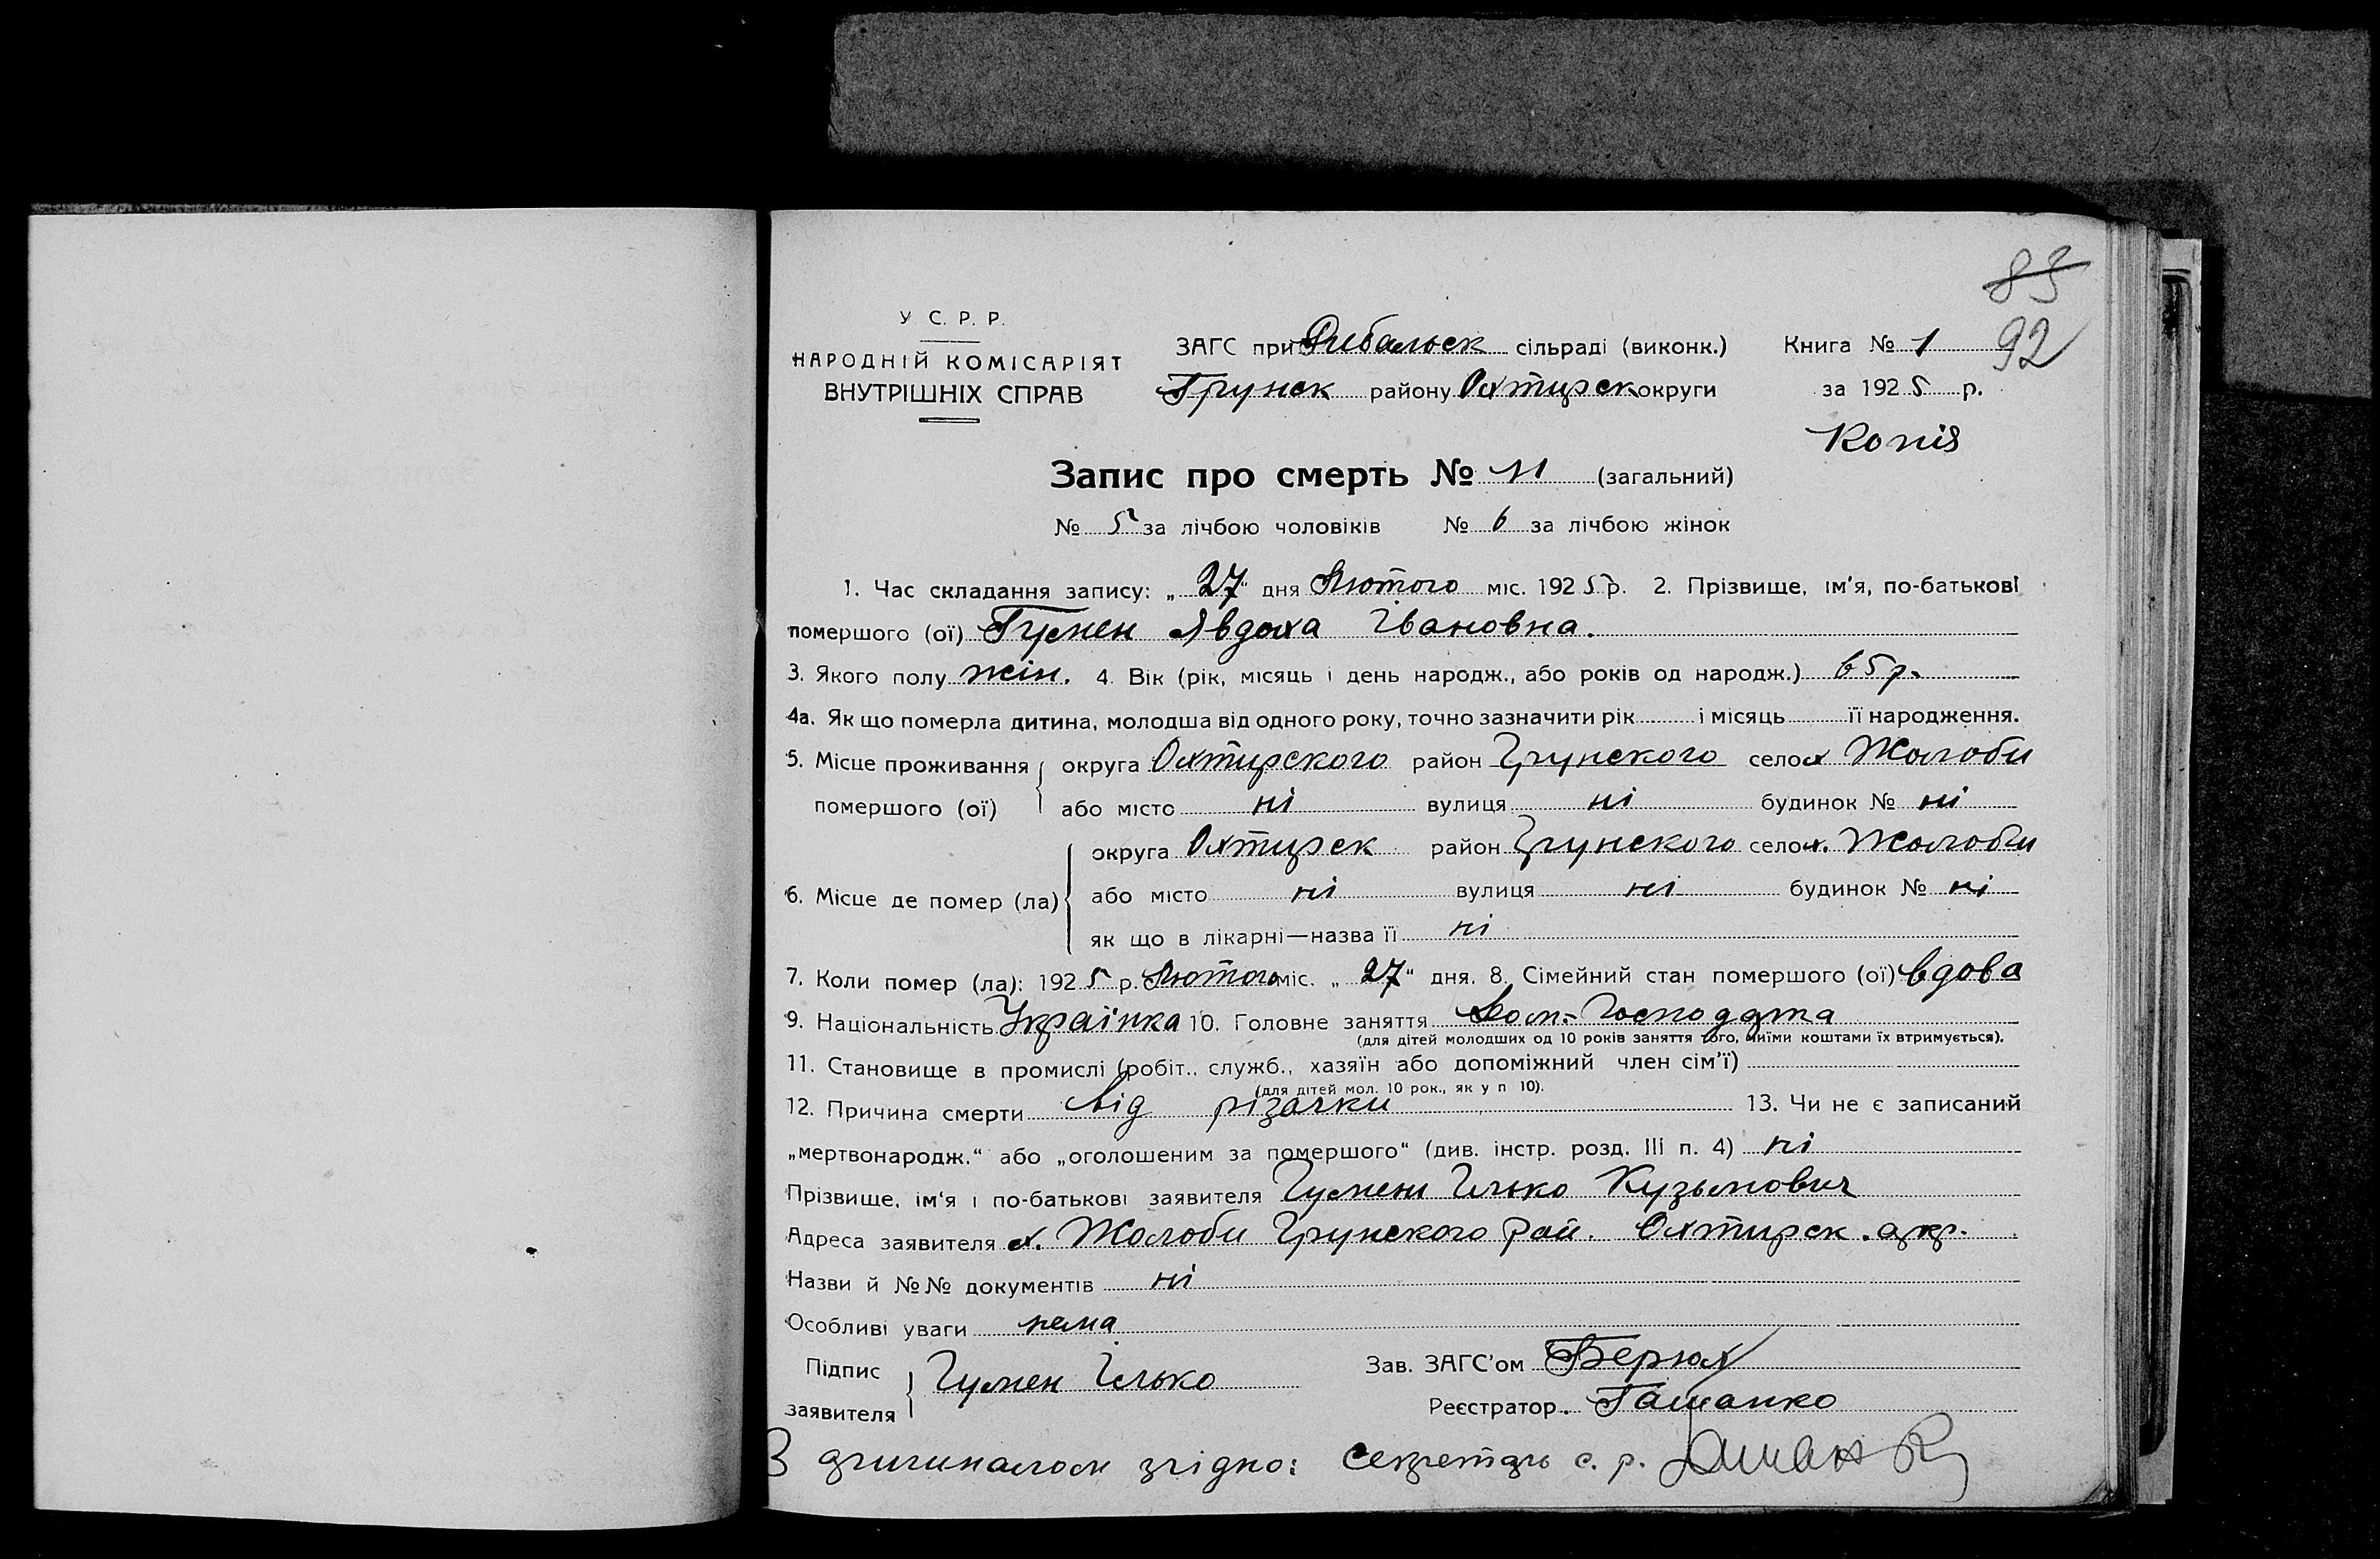 83
92
У. С. Р. Р.
НАРОДНІЙ КОМІСАРІЯТ
ВНУТРІШНІХ СПРАВ
ЗАГС при Рибальск сільраді (виконк.) Книга № 1
Грунск району Охтирск округи за 1925 р.
Копія
Запис про смерть № 11 (загальний)
№ 5 за лічбою чоловіків № 6 за лічбою жінок
1. Час складання запису: „27“ дня Лютого міс. 1925 р. 2. Прізвище, ім'я, по-батькові
помершого (ої) Гумен Явдоха Івановна.
3. Якого полу жін. 4. Вік (рік, місяць і день народж., або років од народж.) 65 р.
4а. Як що померла дитина, молодша від одного року, точно зазначити рік і місяць її народження.
5. Місце проживання помершого (ої) округа Охтирского район Грунского село х Жолоби
або місто ні вулиця ні будинок № ні
6. Місце де помер (ла) округа Охтирск район Грунского село х. Жолоби
або місто ні вулиця ні будинок № ні
як що в лікарні—назва її ні
7. Коли помер (ла): 1925 р. Лютого міс. „27“ дня. 8. Сімейний стан помершого (ої) вдова
9. Національність Українка 10. Головне заняття Дом-Господарка
(для дітей молодших од 10 років заняття того, чиїми коштами їх втримується).
11. Становище в промислі (робіт., служб., хазяїн або допоміжний член сім'ї)
(для дітей мол. 10 рок., як у п 10).
12. Причина смерти від різачки 13. Чи не є записаний
„мертвонародж.“ або „оголошеним за помершого“ (див. інстр. розд. III п. 4) ні
Прізвище, ім'я і по-батькові заявителя Гумен Ілько Кузьмович
Адреса заявителя х. Жолоби Грунского рай. Охтирск. окр.
Назви й №№ документів ні
Особливі уваги нема
Підпис заявителя Гумен Ілько
Зав. ЗАГС'ом Берюх
Реєстратор. Гашанко
З оригиналом згідно: Секретарь с. р.